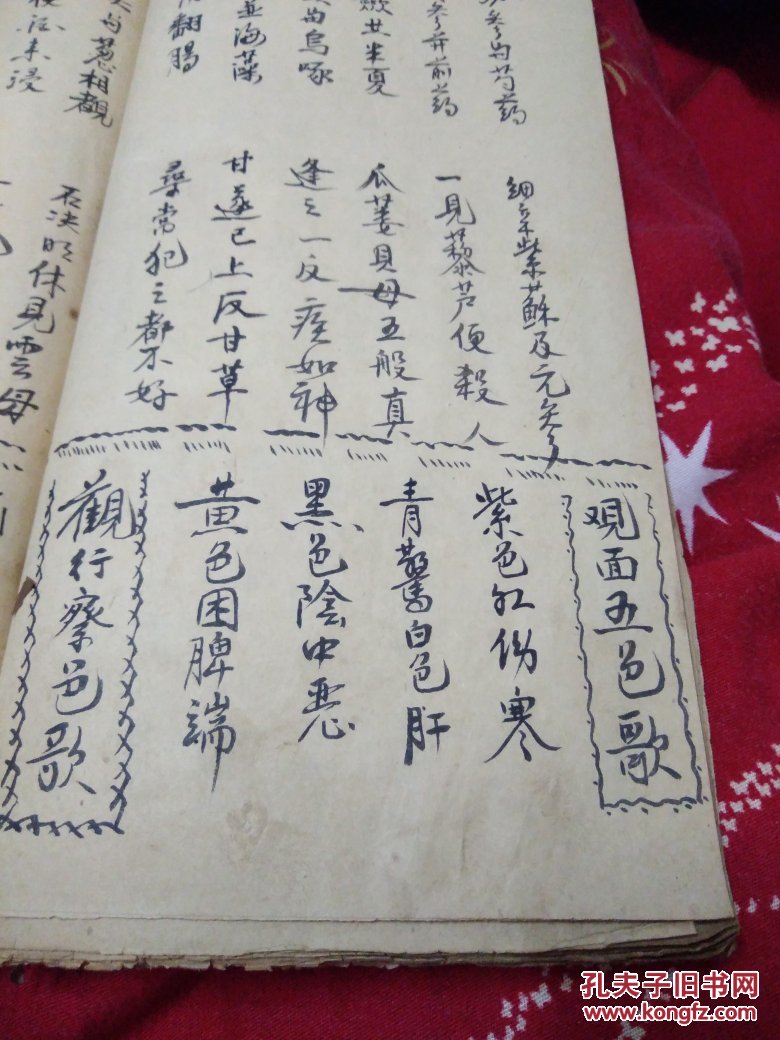 参与芍药
参并前药
共半夏
与乌啄
並海藻
翻腸
細辛紫蘇及元参
一見藜芦便殺人
瓜蒌貝母五般真
逢之一反疾如神
甘遂已上反甘草
尋常犯之都不好
与葱相觀
未浸
石决明休見雲母
观面五色歌
紫色红伤寒
青驚白色肝
黑色陰中恶
黄色困脾端
觀行察色歌
孔夫子旧书网
www.kongfz.com